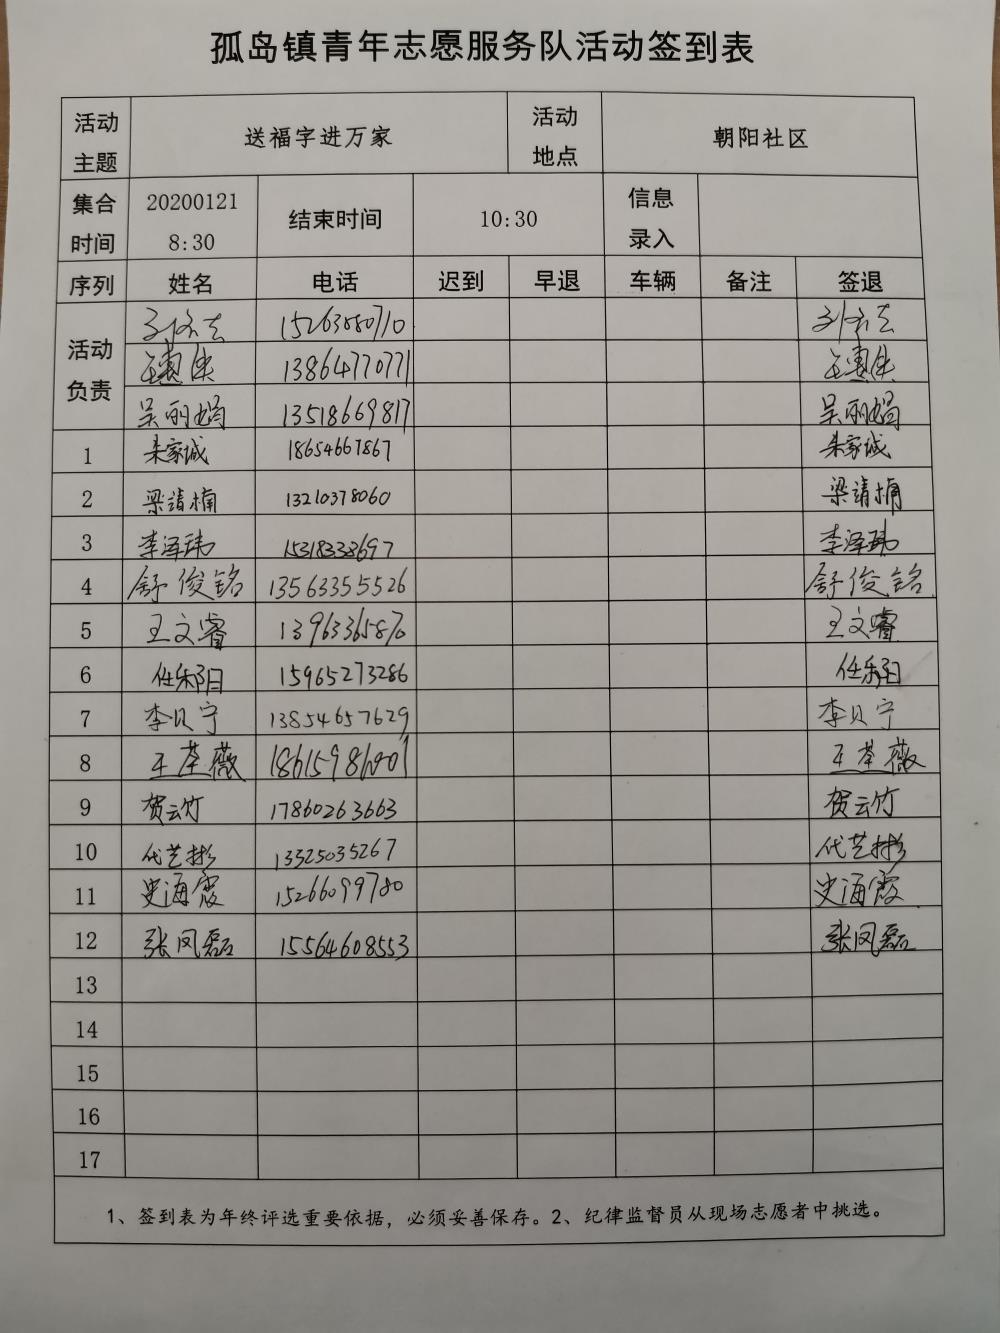 孤岛镇青年志愿服务队活动签到表
活动主题 送福字进万家 活动地点 朝阳社区
集合时间 20200121 8:30 结束时间 10:30 信息录入
序列 姓名 电话 迟到 早退 车辆 备注 签退
活动负责
王惠 13864770771 王惠
吴丽娟 13518669817 吴丽娟
1 朱家诚 18654667867 朱家诚
2 梁靖楠 13210378060 梁靖楠
3 李泽玮 15318338697 李泽玮
4 舒俊铭 13563355526 舒俊铭
5 王文睿 13963365870 王文睿
6 任禾阳 15965273286 任禾阳
7 李贝宁 13854657629 李贝宁
8 王荃薇 18615986001 王荃薇
9 贺云竹 17860263663 贺云竹
10 代艺彬 13325035267 代艺彬
11 史海霞 15266099780 史海霞
12 张凤磊 15564608553 张凤磊
13
14
15
16
17
1、签到表为年终评选重要依据，必须妥善保存。2、纪律监督员从现场志愿者中挑选。